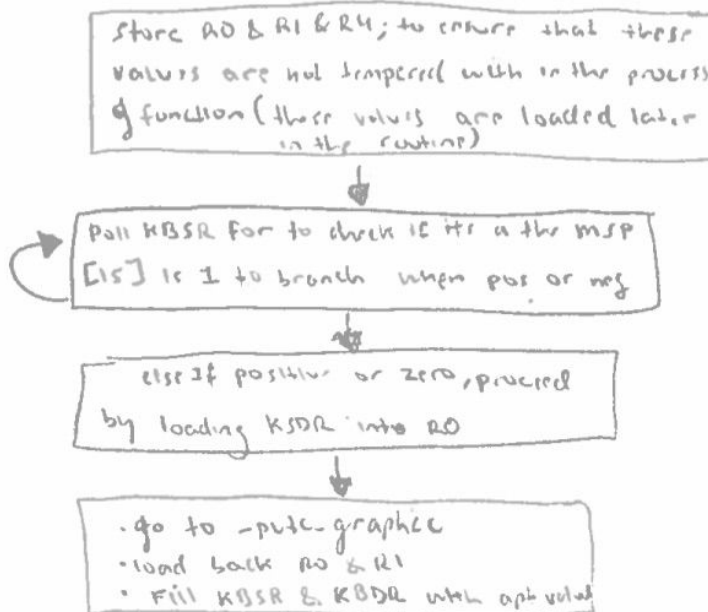 Store R0 & R1 & R4; to ensure that these
values are not tempered with in the process
of function (these values are loaded later
in the routine)
Poll KBSR for to check if its a the msp
[15] is 1 to branch when pos or neg
else If positive or zero, proceed
by loading KSDR into R0
• go to -putc-graphic
• load back R0 & R1
• Fill KBSR & KBDR with apt values